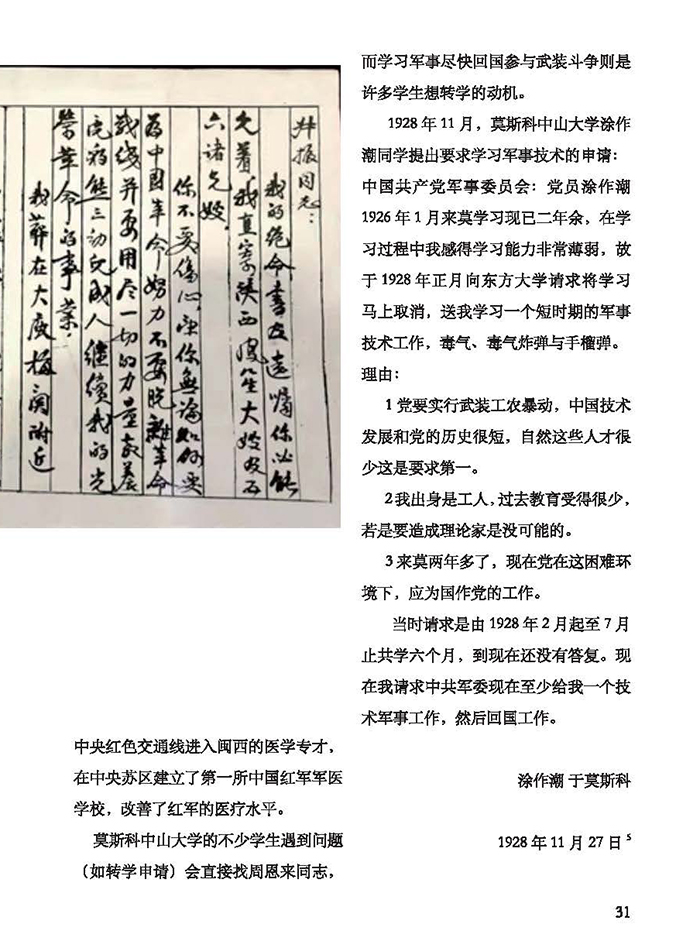 叔振同志：
我的绝命書及遺嘱你必能
见着我直寄陕西凤笙大嫂及五
六诸兄嫂
你不要傷心望你無論如何要
为中國革命努力不要脱離革命
战线并要用尽一切的力量教养
虎豹熊三幼儿成人继續我的光
榮革命的事業。
我葬在大庾梅関附近
中央红色交通线进入闽西的医学专才，
在中央苏区建立了第一所中国红军军医
学校，改善了红军的医疗水平。
莫斯科中山大学的不少学生遇到问题
（如转学申请）会直接找周恩来同志，
而学习军事尽快回国参与武装斗争则是
许多学生想转学的动机。
1928 年 11 月，莫斯科中山大学涂作
潮同学提出要求学习军事技术的申请：
中国共产党军事委员会：党员涂作潮
1926 年 1 月来莫学习现已二年余，在学
习过程中我感得学习能力非常薄弱，故
于 1928 年正月向东方大学请求将学习
马上取消，送我学习一个短时期的军事
技术工作，毒气、毒气炸弹与手榴弹。
理由：
1 党要实行武装工农暴动，中国技术
发展和党的历史很短，自然这些人才很
少这是要求第一。
2 我出身是工人，过去教育受得很少，
若是要造成理论家是没可能的。
3 来莫两年多了，现在党在这困难环
境下，应为国作党的工作。
当时请求是由 1928 年 2 月起至 7 月
止共学六个月，到现在还没有答复。现
在我请求中共军委现在至少给我一个技
术军事工作，然后回国工作。
涂作潮 于莫斯科
1928 年 11 月 27 日 5
31